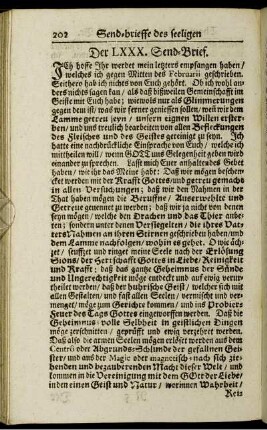 202 Send-brieffe des seeligen
Der LXXX. Send-Brief.
ICh hoffe Ihr werdet mein letzters empfangen haben /
welches ich gegen Mitten des Februarii geschrieben.
Seithero hab ich nichts von Euch gehört. Ob ich wohl an-
ders nichts sagen kan / als daß bißweilen Gemeinschafft im
Geiste mit Euch habe; wiewol nur als Glimmerungen
gegen das ist / was wir ferner geniessen sollen / weil wir dem
Lamme getreu seyn / unsern eignen Willen erster-
ben / und uns treulich bearbeiten von allen Befleckungen
des Fleisches und des Geistes gereiniget zu seyn. Ich
hatte eine nachdrückliche Einsprache von Euch / welche ich
mittheilen will / wenn GOTT uns Gelegenheit geben wird
einander zusprechen. Last mich Euer anhaltendes Gebet
haben / wie ihr das Meine habt: Daß wir mögen beschen-
cket werden mit der Krafft Gottes / und getreu gemacht
in allen Versuchungen; daß wir den Nahmen in der
That haben mögen die Beruffne / Auserwehlte und
Getreue genennet zu werden; daß wir ja nicht von denen
seyn mögen / welche den Drachen und das Thier anbe-
ten; sondern unter denen Versiegelten / die ihres Va-
ters Nahmen an ihren Stirnen geschrieben haben / und
dem Lamme nachfolgen / wohin es gehet. O wie äch-
zet / seufftzet und ringet meine Seele nach der Erlösung
Sions / der Herrschafft Gottes in Liebe / Reinigkeit
und Krafft; daß das gantze Geheimnus der Sünde
und Ungerechtigkeit möge entdeckt und auf ewig verur-
theilet werden / daß der huhrische Geist / welcher sich mit
allen Gestalten / und fast allen Seelen / vermischt und ver-
menget / möge zum Gerichte kommen / und ins Probier-
Feuer des Tags Gottes eingeworffen werden. Daß die
Geheimnus-volle Selbheit in geistlichen Dingen
möge zerschnitten / geprüfft und ewig verzehret werden.
Daß also die armen Seelen mögen erlöset werden aus dem
Centro oder Abgrunds-Schlunde der gefallnen Gei-
ster / und aus der Magic oder magnetisch-nach sich zie-
henden und bezaubernden Macht dieser Welt / und
kommen in die Vereinigung mit dem GOtt der Liebe /
in den einen Geist und Natur / worinnen Wahrheit /
Rei-